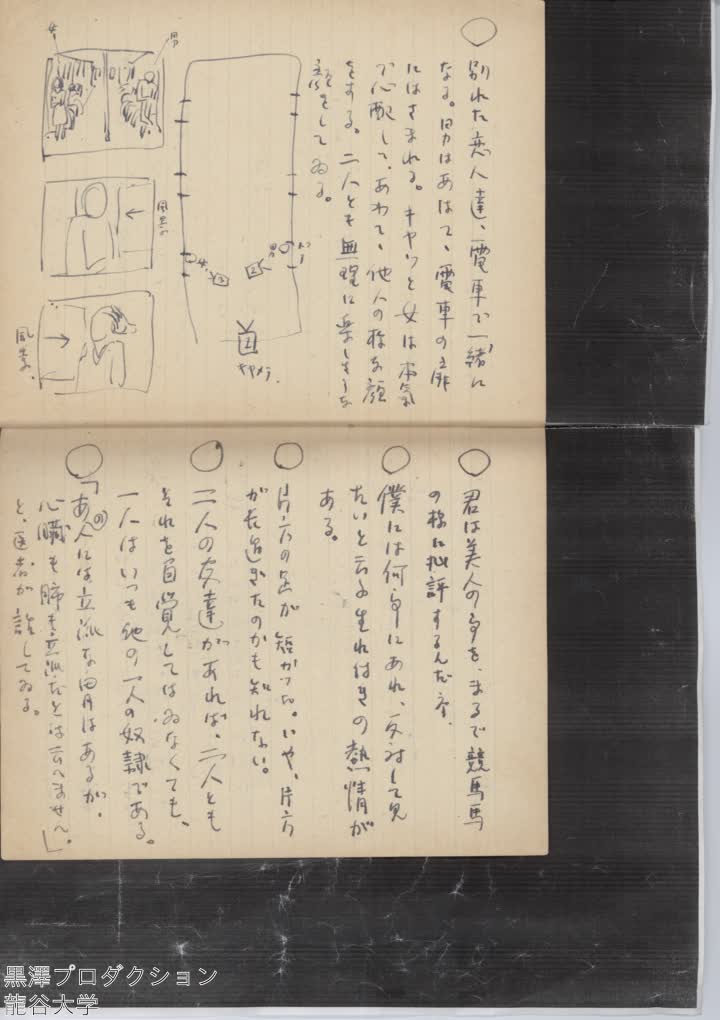 別れた恋人達、電車で一緒に
なる。男はあはてて、電車の扉
にはさまれる。キャッと女は本気
で心配して、あわてゝ他人の様な顔
をする。二人とも無理に楽しさうな
顔をしてゐる。
男
女
風景
女
男
2
3
1
キャメラ
風景
君は美人の事を、まるで競馬馬
の様に批評するんだネ、
僕には何事にあれ、反対して見
たいと云ふ生れつきの熱情が
ある。
片方の足が短かつた。いや、片方
が長過ぎたのかも知れない。
二人の友達があれば、二人とも
それを自覚してはゐなくても、
一人はいつも他の一人の奴隷である。
「あの人には立派な胃はあるが、
心臓も肺も立派だとは云へません。」
と、医者が話してゐる。
黒澤プロダクション
龍谷大学